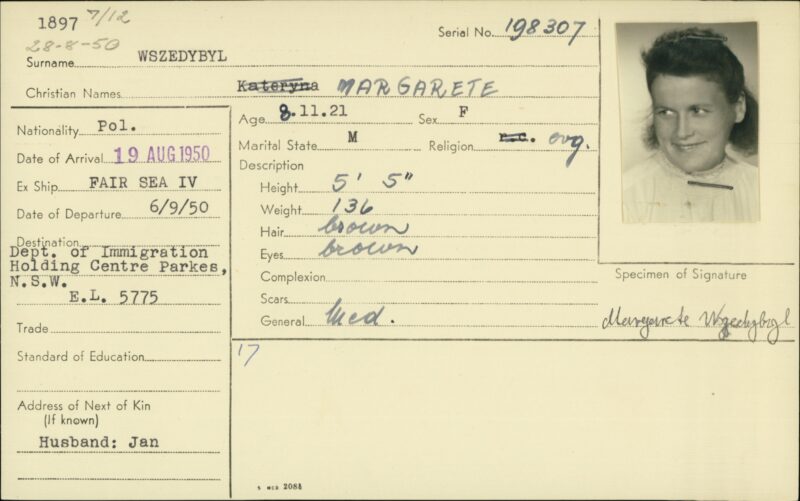 1897 7/12
28-8-50
Surname WSZEDYBYL
Serial No. 198307
Christian Names Kateryna MARGARETE
Nationality Pol.
Date of Arrival 19 AUG 1950
Ex Ship FAIR SEA IV
Date of Departure 6/9/50
Destination
Dept. of Immigration
Holding Centre Parkes,
N.S.W.
E.L. 5775
Trade
Standard of Education
Address of Next of Kin
(If known)
Husband: Jan
Age 8.11.21 Sex F
Marital State M Religion r.c. evg.
Description
Height 5' 5"
Weight 136
Hair brown
Eyes brown
Complexion
Scars
General Med.
17
Specimen of Signature
Margarete Wszedybyl
2084